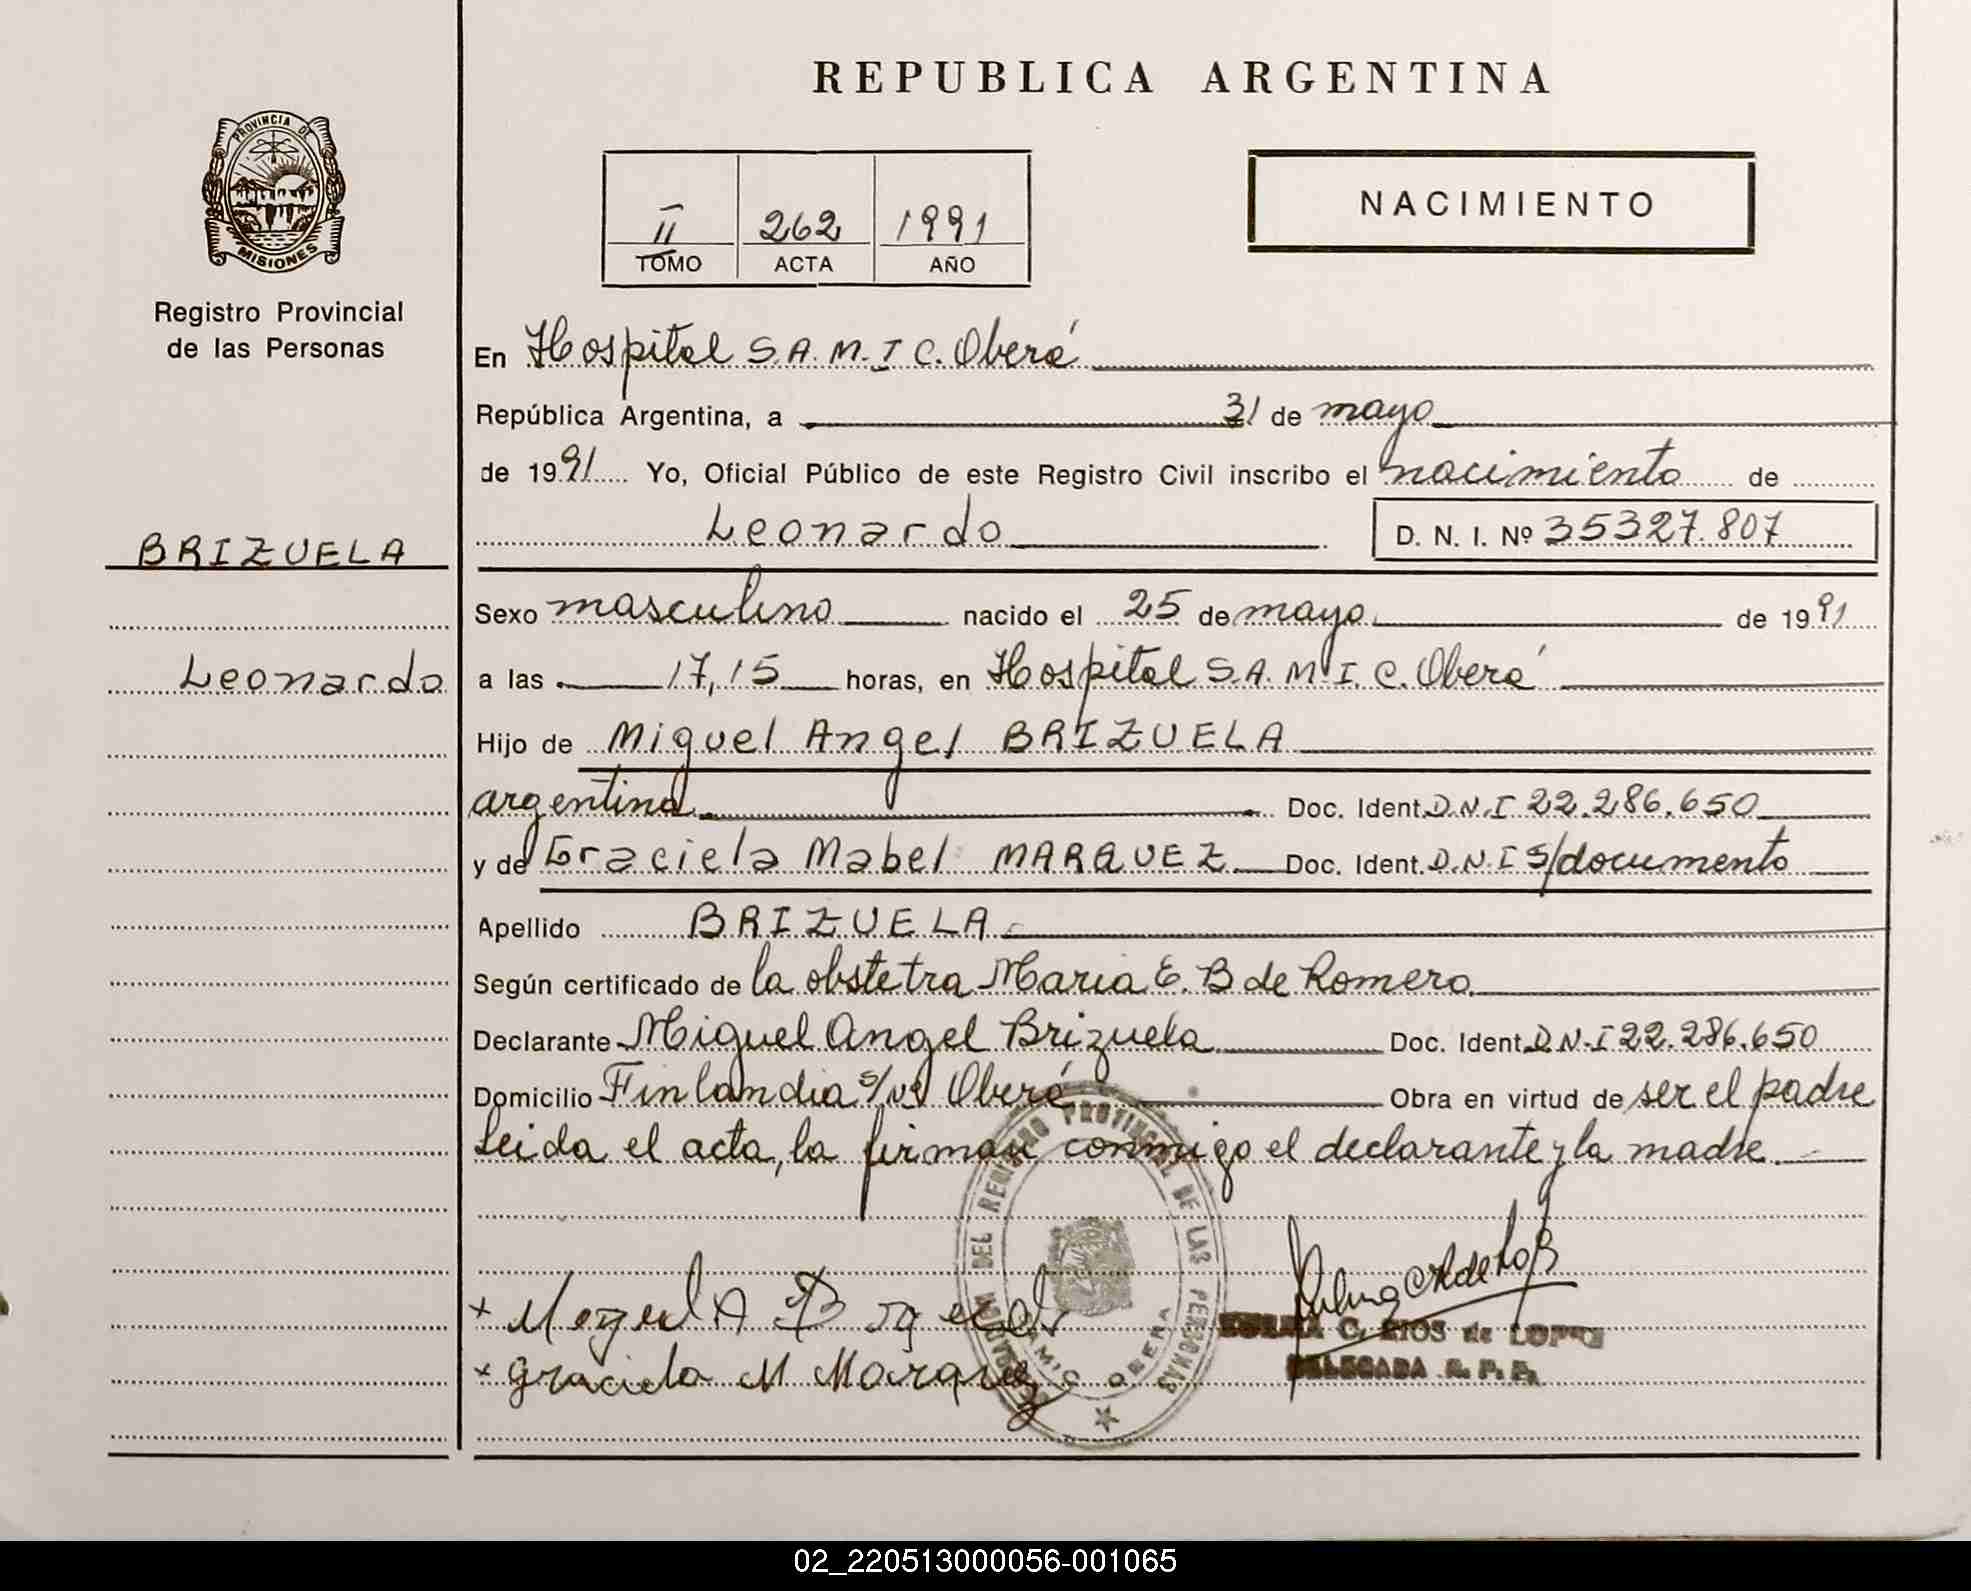 REPUBLICA ARGENTINA
PROVINCIA DE
MISIONES
Registro Provincial
de las Personas
II 262 1991
TOMO ACTA AÑO
NACIMIENTO
En Hospital S.A.M.I.C. Oberá
República Argentina, a 31 de mayo
de 1991 Yo, Oficial Público de este Registro Civil inscribo el nacimiento de
Leonardo D. N. I. Nº 35327.807
BRIZUELA
Leonardo
Sexo masculino nacido el 25 de mayo de 1991
a las 17,15 horas, en Hospital S.A.M.I.C. Oberá
Hijo de Miguel Angel BRIZUELA
argentina Doc. Ident. D.N.I 22.286.650
y de Graciela Mabel MARQUEZ Doc. Ident. D.N.I S/documento
Apellido BRIZUELA
Según certificado de la obstetra Maria E. B de Romero
Declarante Miguel Angel Brizuela Doc. Ident. D.N.I 22.286.650
Domicilio Finlandia s/nº Oberá Obra en virtud de ser el padre
Leida el acta, la firman conmigo el declarante y la madre
DEL REGISTRO PROVINCIAL DE LAS PERSONAS
OBERA
C. RIOS de LOPEZ
DELEGADA R. P. P.
Graciela M Marquez
02_220513000056-001065